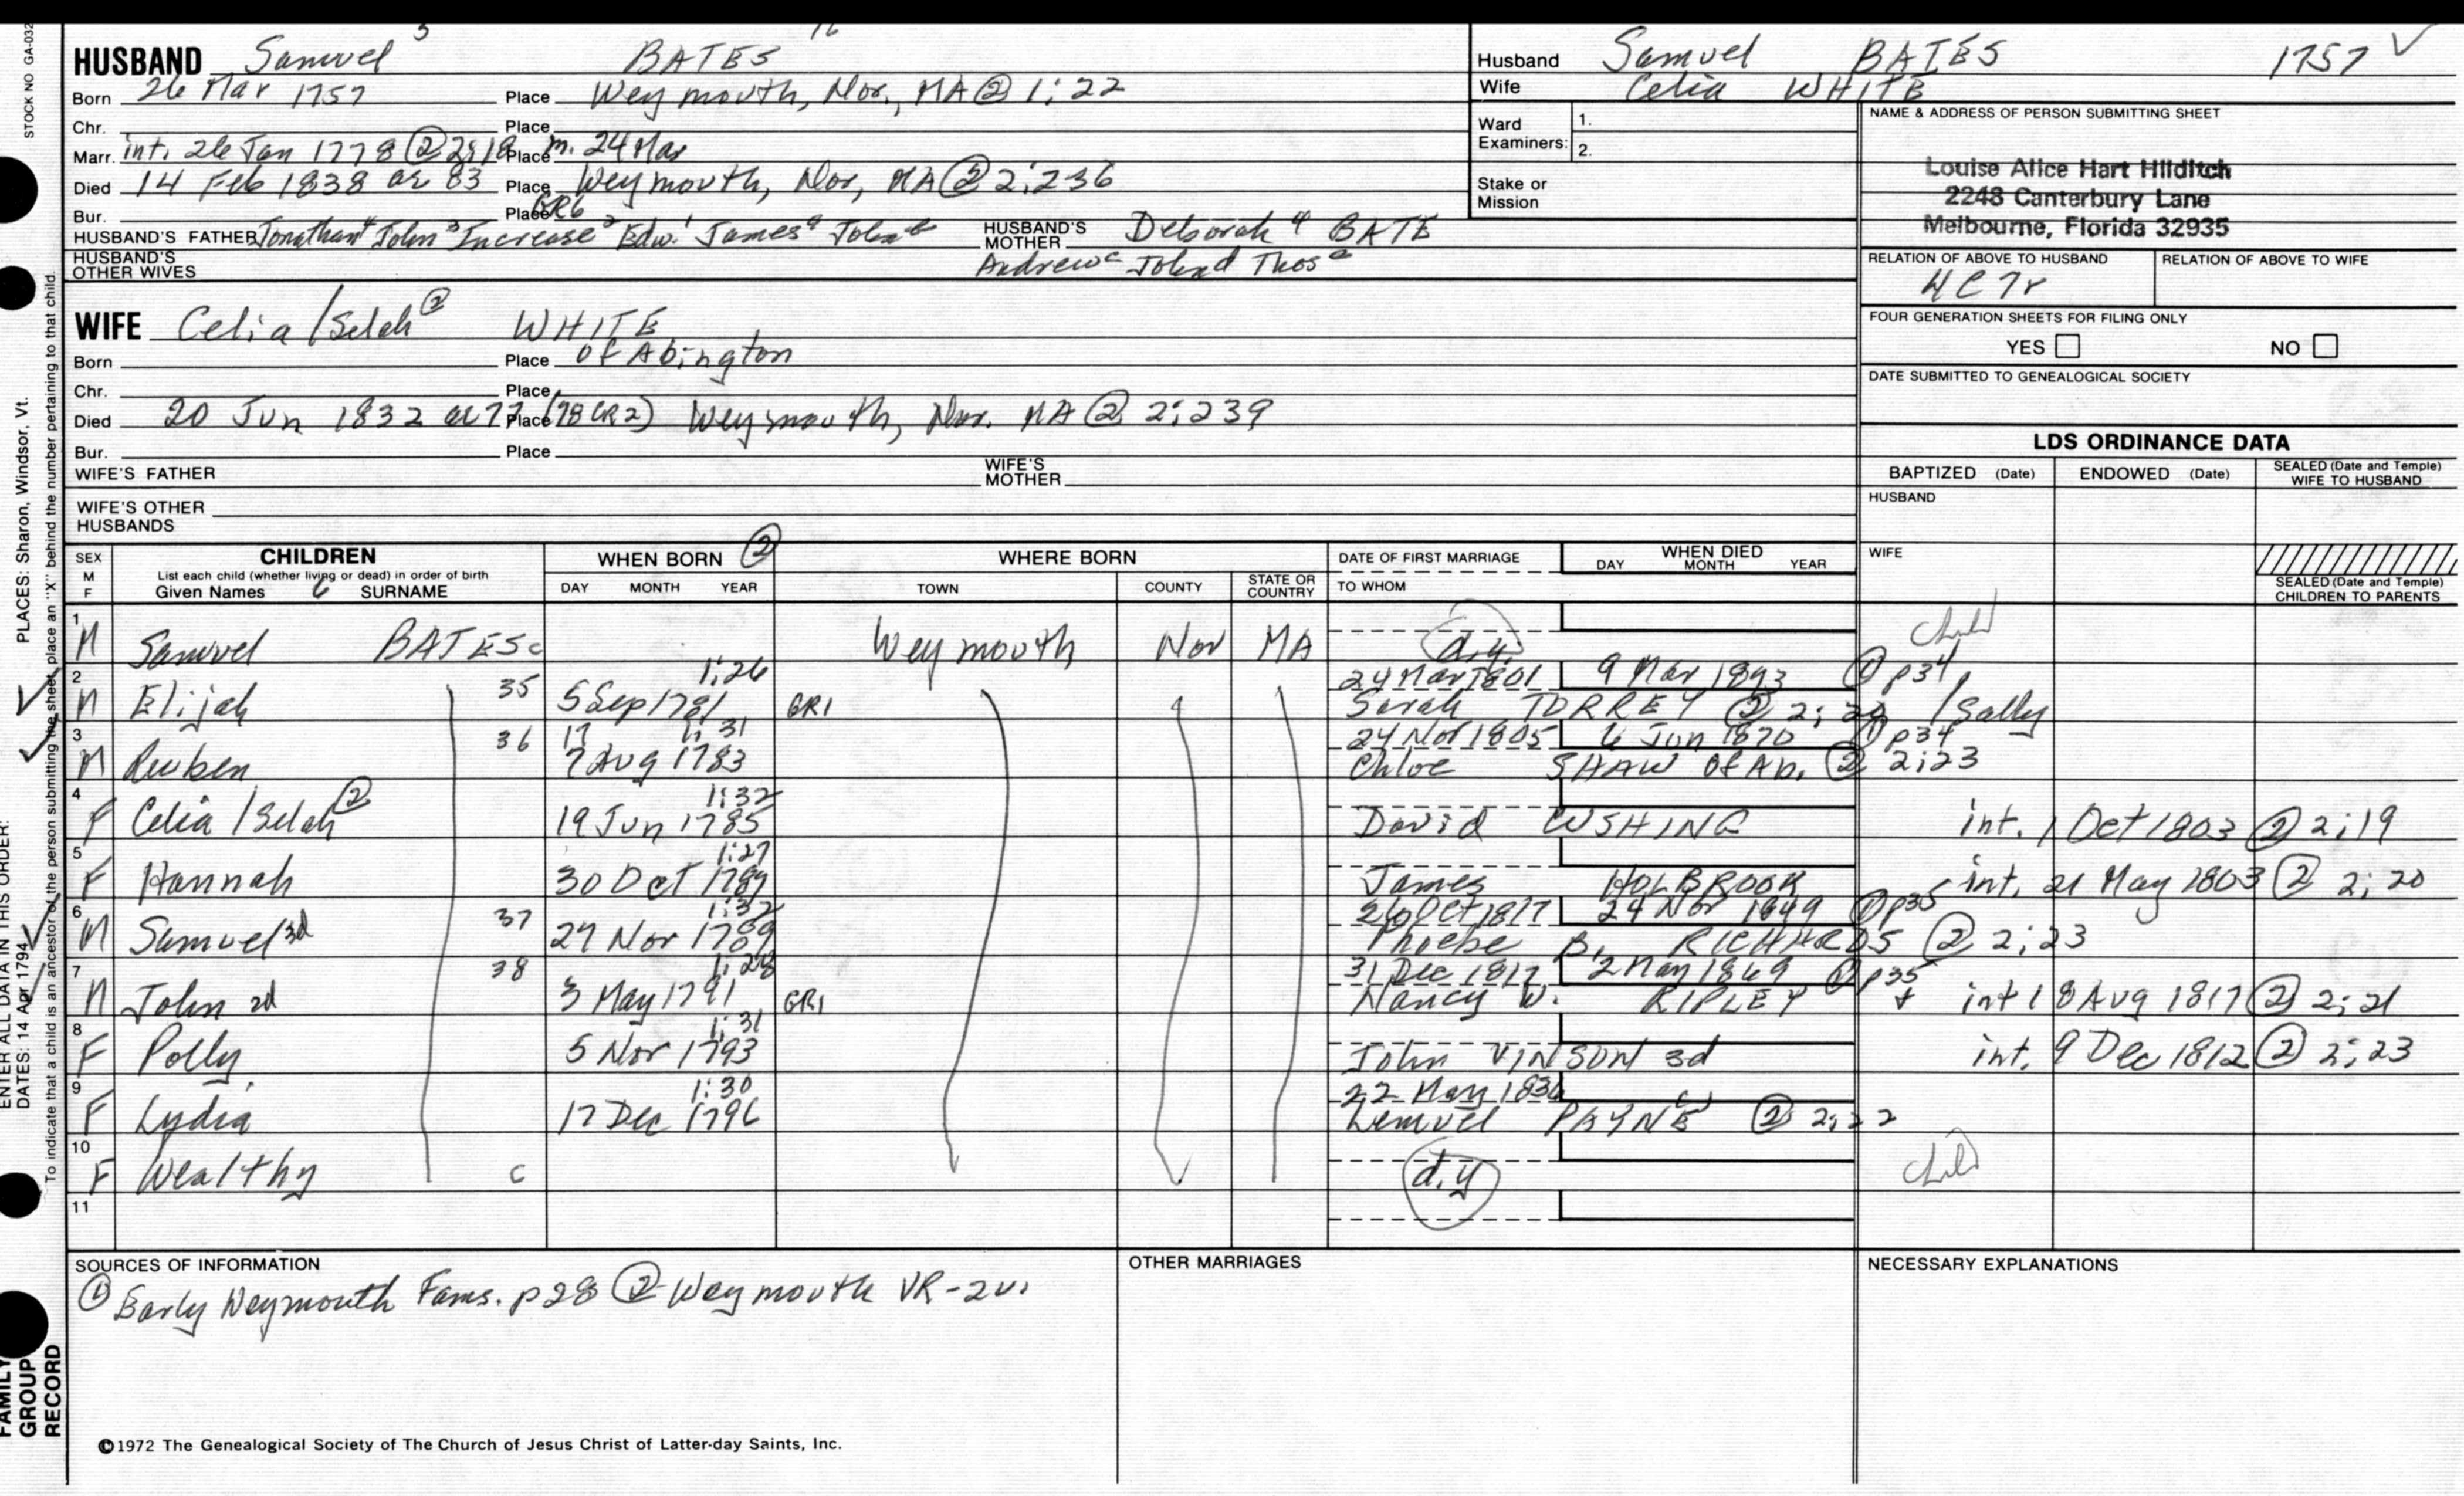 STOCK NO GA-032
HUSBAND Samuel 5 BATES 16
Born 26 Mar 1757 Place Weymouth, Nor., MA ② 1:22
Chr. Place
Marr. int. 26 Jan 1778 ② 2:19 Place m. 24 Mar
Died 14 Feb 1838 ae 83 Place Weymouth, Nor, MA ② 2:236
Bur. Place GR6
HUSBAND'S FATHER Jonathan⁴ John³ Increase² Edw.¹ James John HUSBAND'S MOTHER Deborah 4 BATE
HUSBAND'S OTHER WIVES Andrew John Thos
Husband Samuel BATES 1757 ✓
Wife Celia WHITE
Ward Examiners: 1.
2.
Stake or Mission
NAME & ADDRESS OF PERSON SUBMITTING SHEET
Louise Alice Hart Hilditch
2248 Canterbury Lane
Melbourne, Florida 32935
RELATION OF ABOVE TO HUSBAND RELATION OF ABOVE TO WIFE
4C7r
FOUR GENERATION SHEETS FOR FILING ONLY
YES NO
DATE SUBMITTED TO GENEALOGICAL SOCIETY
WIFE Celia /Selah ② WHITE
Born Place of Abington
Chr. Place
Died 20 Jun 1832 ae 77 Place (78 GR2) Weymouth, Nor. MA ② 2:239
Bur. Place
WIFE'S FATHER WIFE'S MOTHER
WIFE'S OTHER HUSBANDS
LDS ORDINANCE DATA
BAPTIZED (Date) ENDOWED (Date) SEALED (Date and Temple) WIFE TO HUSBAND
HUSBAND
WIFE
SEALED (Date and Temple) CHILDREN TO PARENTS
SEX M F CHILDREN WHEN BORN ② WHERE BORN DATE OF FIRST MARRIAGE WHEN DIED
List each child (whether living or dead) in order of birth
Given Names SURNAME DAY MONTH YEAR TOWN COUNTY STATE OR COUNTRY TO WHOM DAY MONTH YEAR
1 M Samuel BATES c Weymouth Nor MA d.y. child
2 M Elijah 35 1:26 5 Sep 1781 GR1 24 Mar 1801 9 Mar 1893 ① p34
Sarah TORREY ② /Sally
3 M Reuben 36 17 1:31 7 Aug 1783 24 Nov 1805 6 Jun 1870 ① p34
Chloe SHAW of Ab. ② 2:23
4 F Celia /Selah ② 1:32 19 Jun 1785 David CUSHING int. 1 Oct 1803 ② 2:19
5 F Hannah 1:27 30 Oct 1787 James HOLBROOK int. 21 May 1803 ② 2:20
6 M Samuel 3d 37 1:32 27 Nov 1789 26 Oct 1817 24 Nov 1849 ① p35
Phoebe B. RICHARDS ② 2:23
7 M John 2d 38 1:28 3 May 1791 GR1 31 Dec 1817 2 May 1869 ① p35
Nancy W. RIPLEY + int 18 Aug 1817 ② 2:21
8 F Polly 1:31 5 Nov 1793 John VINSON 3d int. 9 Dec 1812 ② 2:23
9 F Lydia 1:30 17 Dec 1796 22 May 1830
Lemuel PAYNE ② 2:22
10 F Wealthy c d.y child
11
SOURCES OF INFORMATION OTHER MARRIAGES NECESSARY EXPLANATIONS
① Early Weymouth Fams. p28 ② Weymouth VR-2v.
©1972 The Genealogical Society of The Church of Jesus Christ of Latter-day Saints, Inc.
PLACES: Sharon, Windsor, Vt.
ENTER ALL DATA IN THIS ORDER:
DATES: 14 Apr 1794
To indicate that a child is an ancestor of the person submitting the sheet, place an "X" behind the number pertaining to that child.
FAMILY GROUP RECORD